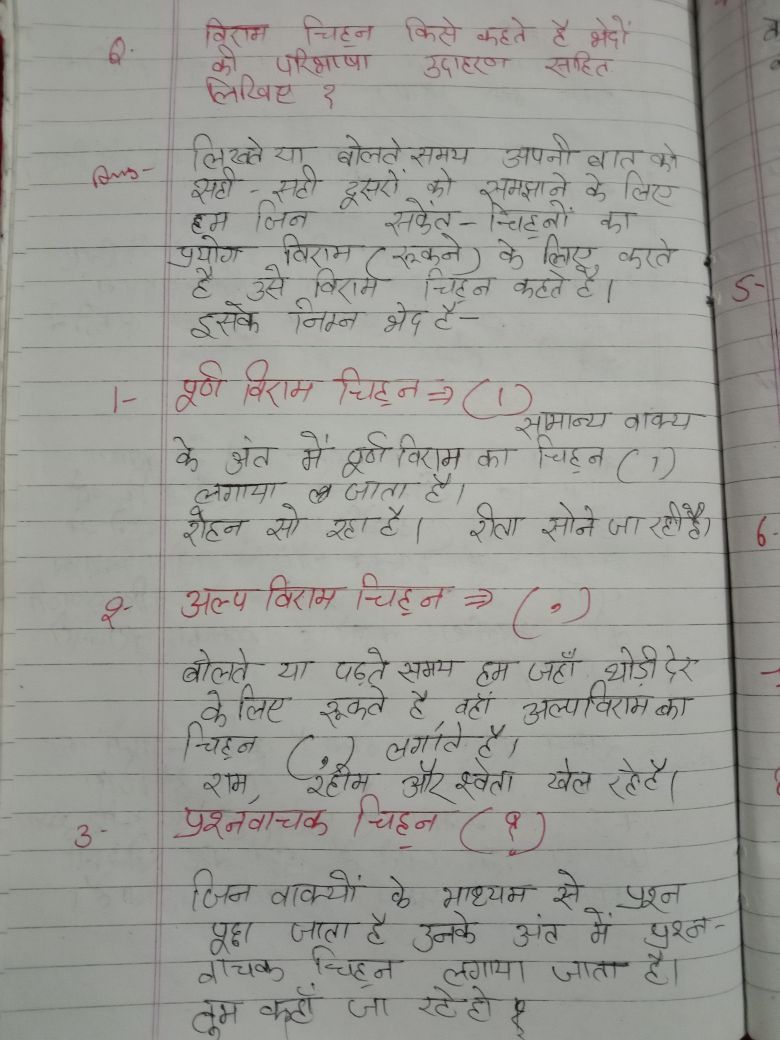 Q. विराम चिह्न किसे कहते है भेदों
की परिभाषा उदाहरण सहित
लिखिए ?
Ans- लिखते या बोलते समय अपनी बात को
सही - सही दूसरों को समझाने के लिए
हम जिन संकेत - चिह्नों का
प्रयोग विराम (रूकने) के लिए करते
है उसे विराम चिह्न कहते है।
इसके निम्न भेद है -
1- पूर्ण विराम चिह्न ⇒ (।)
सामान्य वाक्य
के अंत में पूर्ण विराम का चिह्न (।)
लगाया जाता है।
रोहन सो रहा है। रीता सोने जा रही है।
2- अल्प विराम चिह्न ⇒ (,)
बोलते या पढ़ते समय हम जहाँ थोड़ी देर
के लिए रूकते है, वहाँ अल्पविराम का
चिह्न (,) लगाते है।
राम, रहीम और श्वेता खेल रहे है।
3- प्रश्नवाचक चिह्न (?)
जिन वाक्यों के माध्यम से प्रश्न
पूछा जाता है उनके अंत में प्रश्न-
वाचक चिह्न लगाया जाता है।
तुम कहाँ जा रहे हो ?
5-
6-